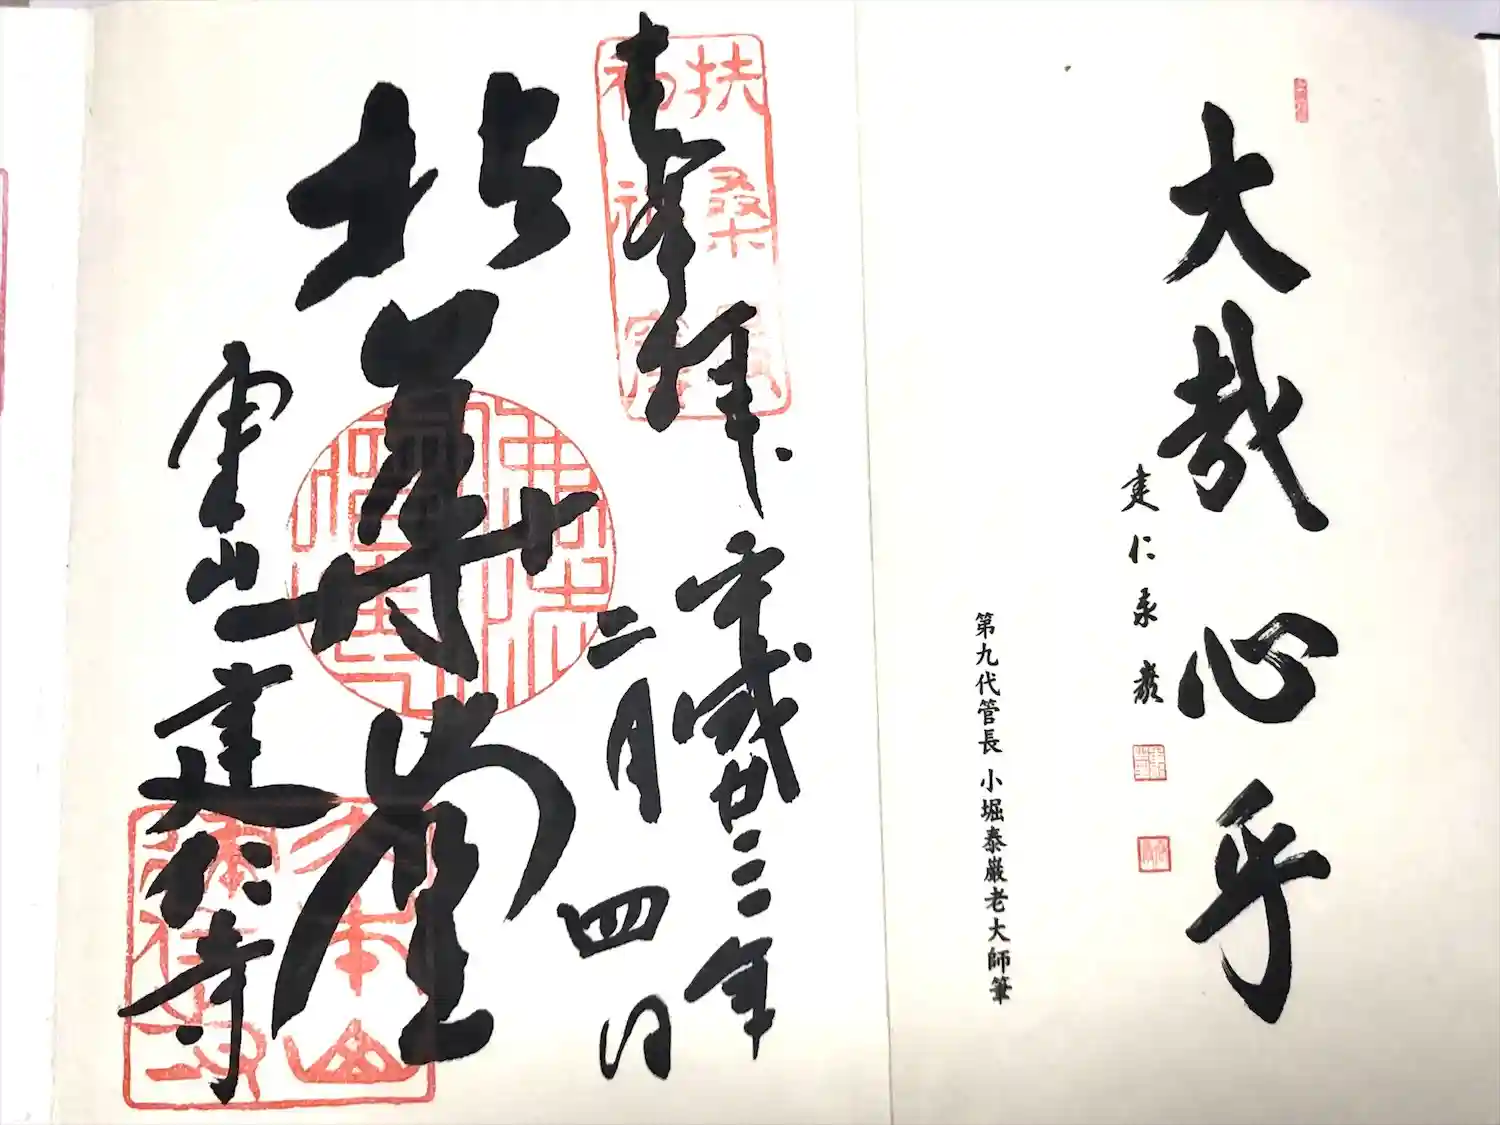 大哉心乎
建仁泰巖
第九代管長 小堀泰巖老大師筆
扶桑最初禅窟
奉拝
平成廿三年
十二月四日
拈華堂
東山建仁寺